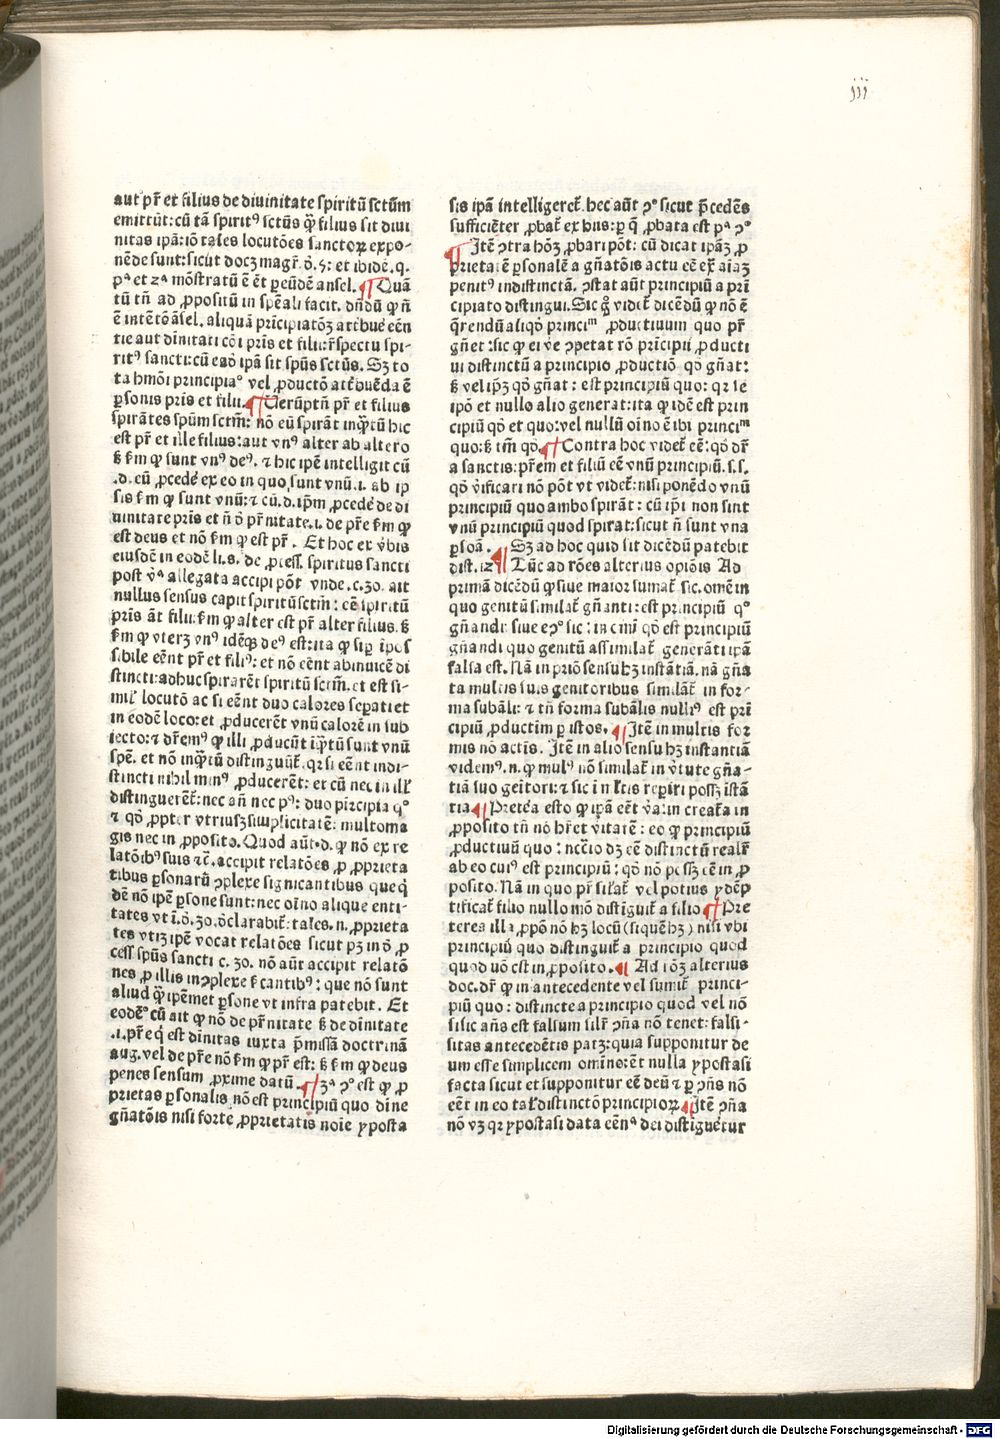 iij
aut᾽ pr̄ et filius de diuinitate spiritū sctūm
emittūt: cū tā spirit⁹ sctūs q̄ filius sit diui
nitas ipā: iō tales locutōes sanctoꝝ expo-
nēde sunt: sicut docꝫ magr̄. ō. 5: et ibidē. q.
pᵃ et 2ᵃ mōstratū ē ēt ꝑ eūdē ansel. ¶ Quā
tū tn̄ ad ꝓpositū in spēali facit. dn̄dū ꝙ n̄
ē intētō āsel. aliquā prīcipiatōꝫ attribuē eēn
tie aut diuitati cōi pr̄is et filii: rspectu spi-
rit⁹ sancti: cū eadō ipā sit spūs sctūs. Sꝫ to
ta hmōi principia° vel ꝓductō attbuēda ē
ꝑsonis pr̄is et filii. ¶ Verūptn̄ pr̄ et filius
spirātes spūm sctm̄: nō eū spirāt inq̄tū hic
est pr̄ et ille filius: aut vn⁹ alter ab altero
ß fm ꝙ sunt vn⁹ de⁹. ⁊ hic ipē intelligit cū
.d. eū ꝓcedē ex eo in quo sunt vnū. i. ab ip
sis fm ꝙ sunt vnū: ⁊ cū. d. ipm̄ ꝓcedē de di
uinitate pr̄is et n̄ ō pr̄nitate. i. de pr̄e fm ꝙ
est deus et nō fm ꝙ est pr̄. Et hoc ex v̄bis
eiusdē in eodē li. s. de ꝓcess. spiritus sancti
post v̄ᵃ allegata accipi pōt vnde. c. 30. ait
nullus sensus capit spiritū sctm̄: cē spiritū
pr̄is āt filii: fm ꝙ alter est pr̄ alter filius. ß
fm ꝙ vterꝫ vn⁹ idēqꝫ de⁹ est: ita ꝙ si ꝑ ipos
sibile eēnt pr̄ et fili⁹: et nō eēnt abinuicē di
stincti: adhuc spirarēt spiritū sctm̄. et est si-
mil᾽ locutō ac si eēnt duo calores sepati et
in eodē loco: et ꝓducerēt vnū calorē in sub
iecto: ⁊ dr̄em⁹ ꝙ illi ꝓducūt iq̄tū sunt vnū
spē. et nō inq̄tū distinguūt. qꝛ si eēnt indi-
stincti nihil min⁹ ꝓducerēt: et cū nec in illꝭ
distinguerēt: nec an̄ nec p⁹: duo pīrcipia q°
⁊ qō ꝓpter vtriusꝫ simplicitatē: multoma
gis nec in ꝓposito. Quod aūt. d. ꝙ nō ex re
latōib⁹ suis ⁊c̄. accipit relatōes ꝓ ꝓprieta
tibus ꝑsonarū ꝯplexe significantibus que q̄
dē nō ipē ꝑsone sunt: nec oīno alique enti-
tates vt i. ō. 30. ōclarabit: tales. n. ꝓprieta
tes vtiꝫ ipē vocat relatōes sicut pꝫ in ō ꝓ
cess spūs sancti c. 30. nō aūt accipit relatō
nes ꝓ illis inꝯplexe fcantib⁹: que nō sunt
aliud q̄ ipēmet ꝑsone vt infra patebit. Et
eodē° cū ait ꝙ nō de pr̄nitate ß de dīnitate
.i. pr̄e q̄ est dīnitas iuxta p̄missā doctrinā
aug. vel de pr̄e nō fm ꝙ pr̄ est: ß fm ꝙ deus
penes sensum ꝓxime datū. ¶ 3ᵃ ꝯ° est ꝙ ꝓ
prietas ꝑsonalis nō est principiū quo dīne
gn̄atōis nisi forte ꝓprietatis noīe ypostа
sis ipā intelligeret̄. hec aūt ꝯ° sicut p̄cedēs
sufficiēter ꝓbat̄ ex hus: ꝑ q̄ ꝓbata est pᵃ ꝯ°
¶ Itē ꝯtra hōꝫ ꝓbari pōt: cū dicat ipāꝫ ꝓ
prietatē ꝑsonalē a gn̄atōis actu eē ex aīaꝫ
penit⁹ indistinctā. ꝯstat aūt principiū a pri
cipiato distingui. Sic ḡ videt̄ dicēdū ꝙ nō ē
q̄rendū aliqō princiᵐ ꝓductiuum quo pr̄
gn̄et: sic ꝙ ei v̄e ꝯpetat rō prīcipii ꝓducti
ui distinctū a principio ꝓductiō qō gn̄at:
ß vel ipꝫ qō gn̄at: est principiū quo: qꝛ se
ipō et nullo alio generat: ita ꝙ idē est prin
cipiū qō et quo: vel nullū oīno ē ibi princiᵐ
quo: ß tm̄ qō. ¶ Contra hoc videt̄ eē: qō dr̄
a sanctis: pr̄em et filiū eē vnū principiū. s. s.
qō v̄ificari nō pōt vt videt̄: nisi ponēdo vnū
principiū quo ambo spirāt: cū ip̄i non sint
vnū principiū quod spirat: sicut n̄ sunt vna
ꝑsoā. Sꝫ ad hoc quid sit dicēdū patebit
dist. 12 ¶ Tūc ad rōes alterius opiōis Ad
primā dicēdū ꝙ siue maior sumat̄ sic. omē in
quo genitū similat̄ gn̄anti: est principiū q°
gn̄andi: siue eꝯ° sic: in cīni qō est principiū
gn̄andi quo genitū assimilat̄ generāti ipā
falsa est. Nā in priō sensu hꝫ instātiā. nā gn̄a
ta multis suis genitoribus similāt̄ in for
ma subāli: ⁊ tn̄ forma subālis null⁹ est prī
cipiū ꝓductīm ꝑ istos. ¶ Itē in multis for
mis nō actīs. Itē in alio sensu hꝫ instantiā
videm⁹. n. ꝙ mul⁹ nō similat̄ in v̄tute gn̄a-
tiā suo geitori: ⁊ sic in illis reꝑiri possꝫ istā
tia ¶ Pretēa esto ꝙ ipā eēt v̄a: in creat̄a in
ꝓposito tn̄ nō hr̄et v̄itatē: eo ꝙ principiū
ꝓductiuū quo: nccīo dꝫ eē distinctū realr̄
ab eo cui⁹ est principiū: qō nō pōssꝫ eē in ꝓ
posito. Nā in quo pr̄ silat̄ vel potius ydēp
tificat̄ filio nullo mō distīguit̄ a filio ¶ Pre
terea illa ꝓpō nō hꝫ locū (si quē hꝫ) nisi vbi
principiū quo distinguit̄ a principio quod
quod nō est in ꝓposito. ¶ Ad iōꝫ alterius
doc. dr̄ ꝙ in antecedente vel sumit̄ princi-
piū quo: distincte a principio quod vel nō
si sic an̄s est falsum silr̄ ꝯn̄a nō tenet: falsi-
sitas antecedētis patꝫ: quia supponitur de
um esse simplicem omīne: ēt nulla ypostasi
facta sicut et supponitur eē deū ⁊ ꝑ ꝯn̄s nō
eēt in eo tal̄ distinctō principioꝝ ¶ Itē ꝯn̄a
nō vꝫ qꝛ ypostasi data eēnᵃ dei distīguētur
Digitalisierung gefördert durch die Deutsche Forschungsgemeinschaft - DFG